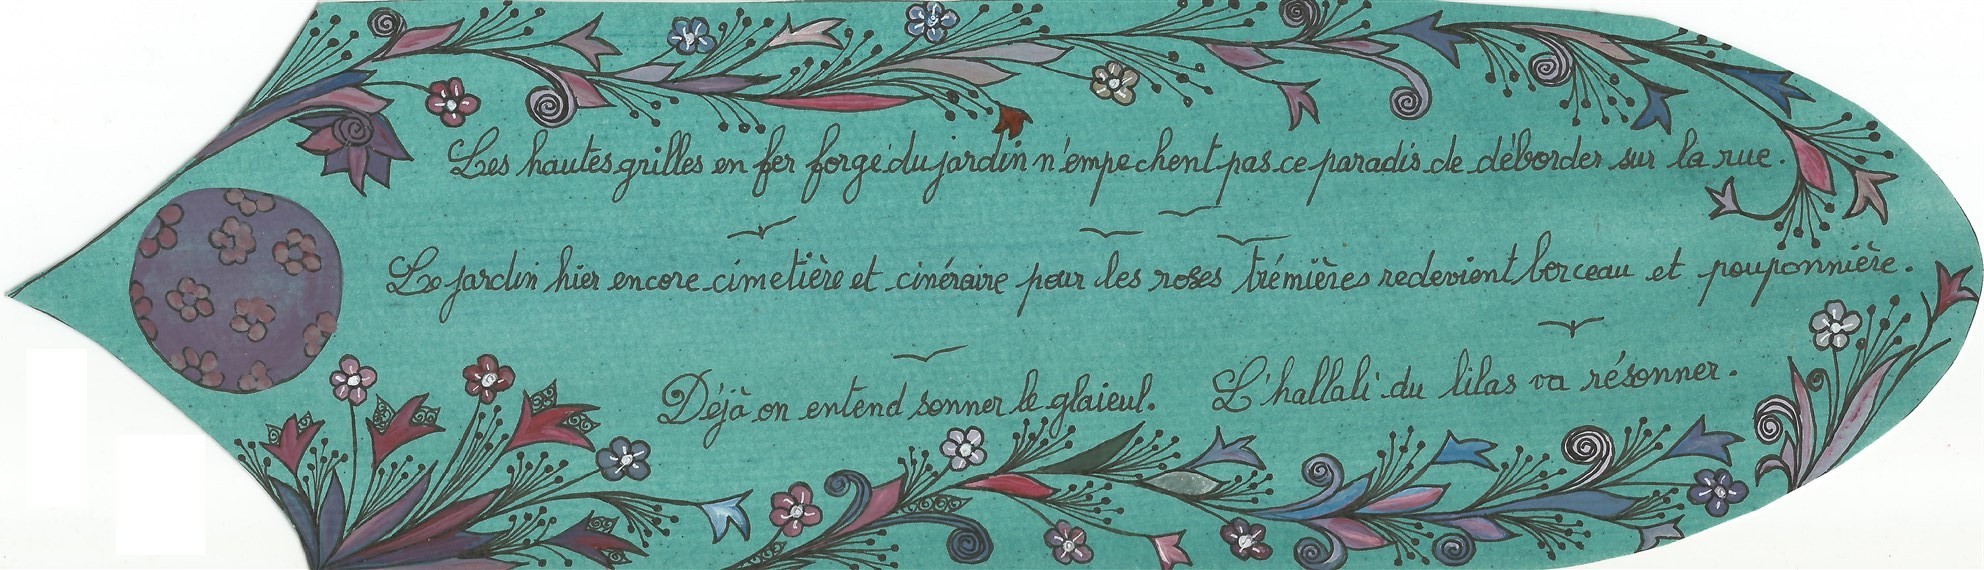 Les hautes grilles en fer forgé du jardin n'empechent pas ce paradis de déborder sur la rue.
Le jardin hier encore cimetière et cinéraire pour les roses trémières redevient berceau et pouponnière.
Déjà on entend sonner le glaieul. L'hallali du lilas va résonner.